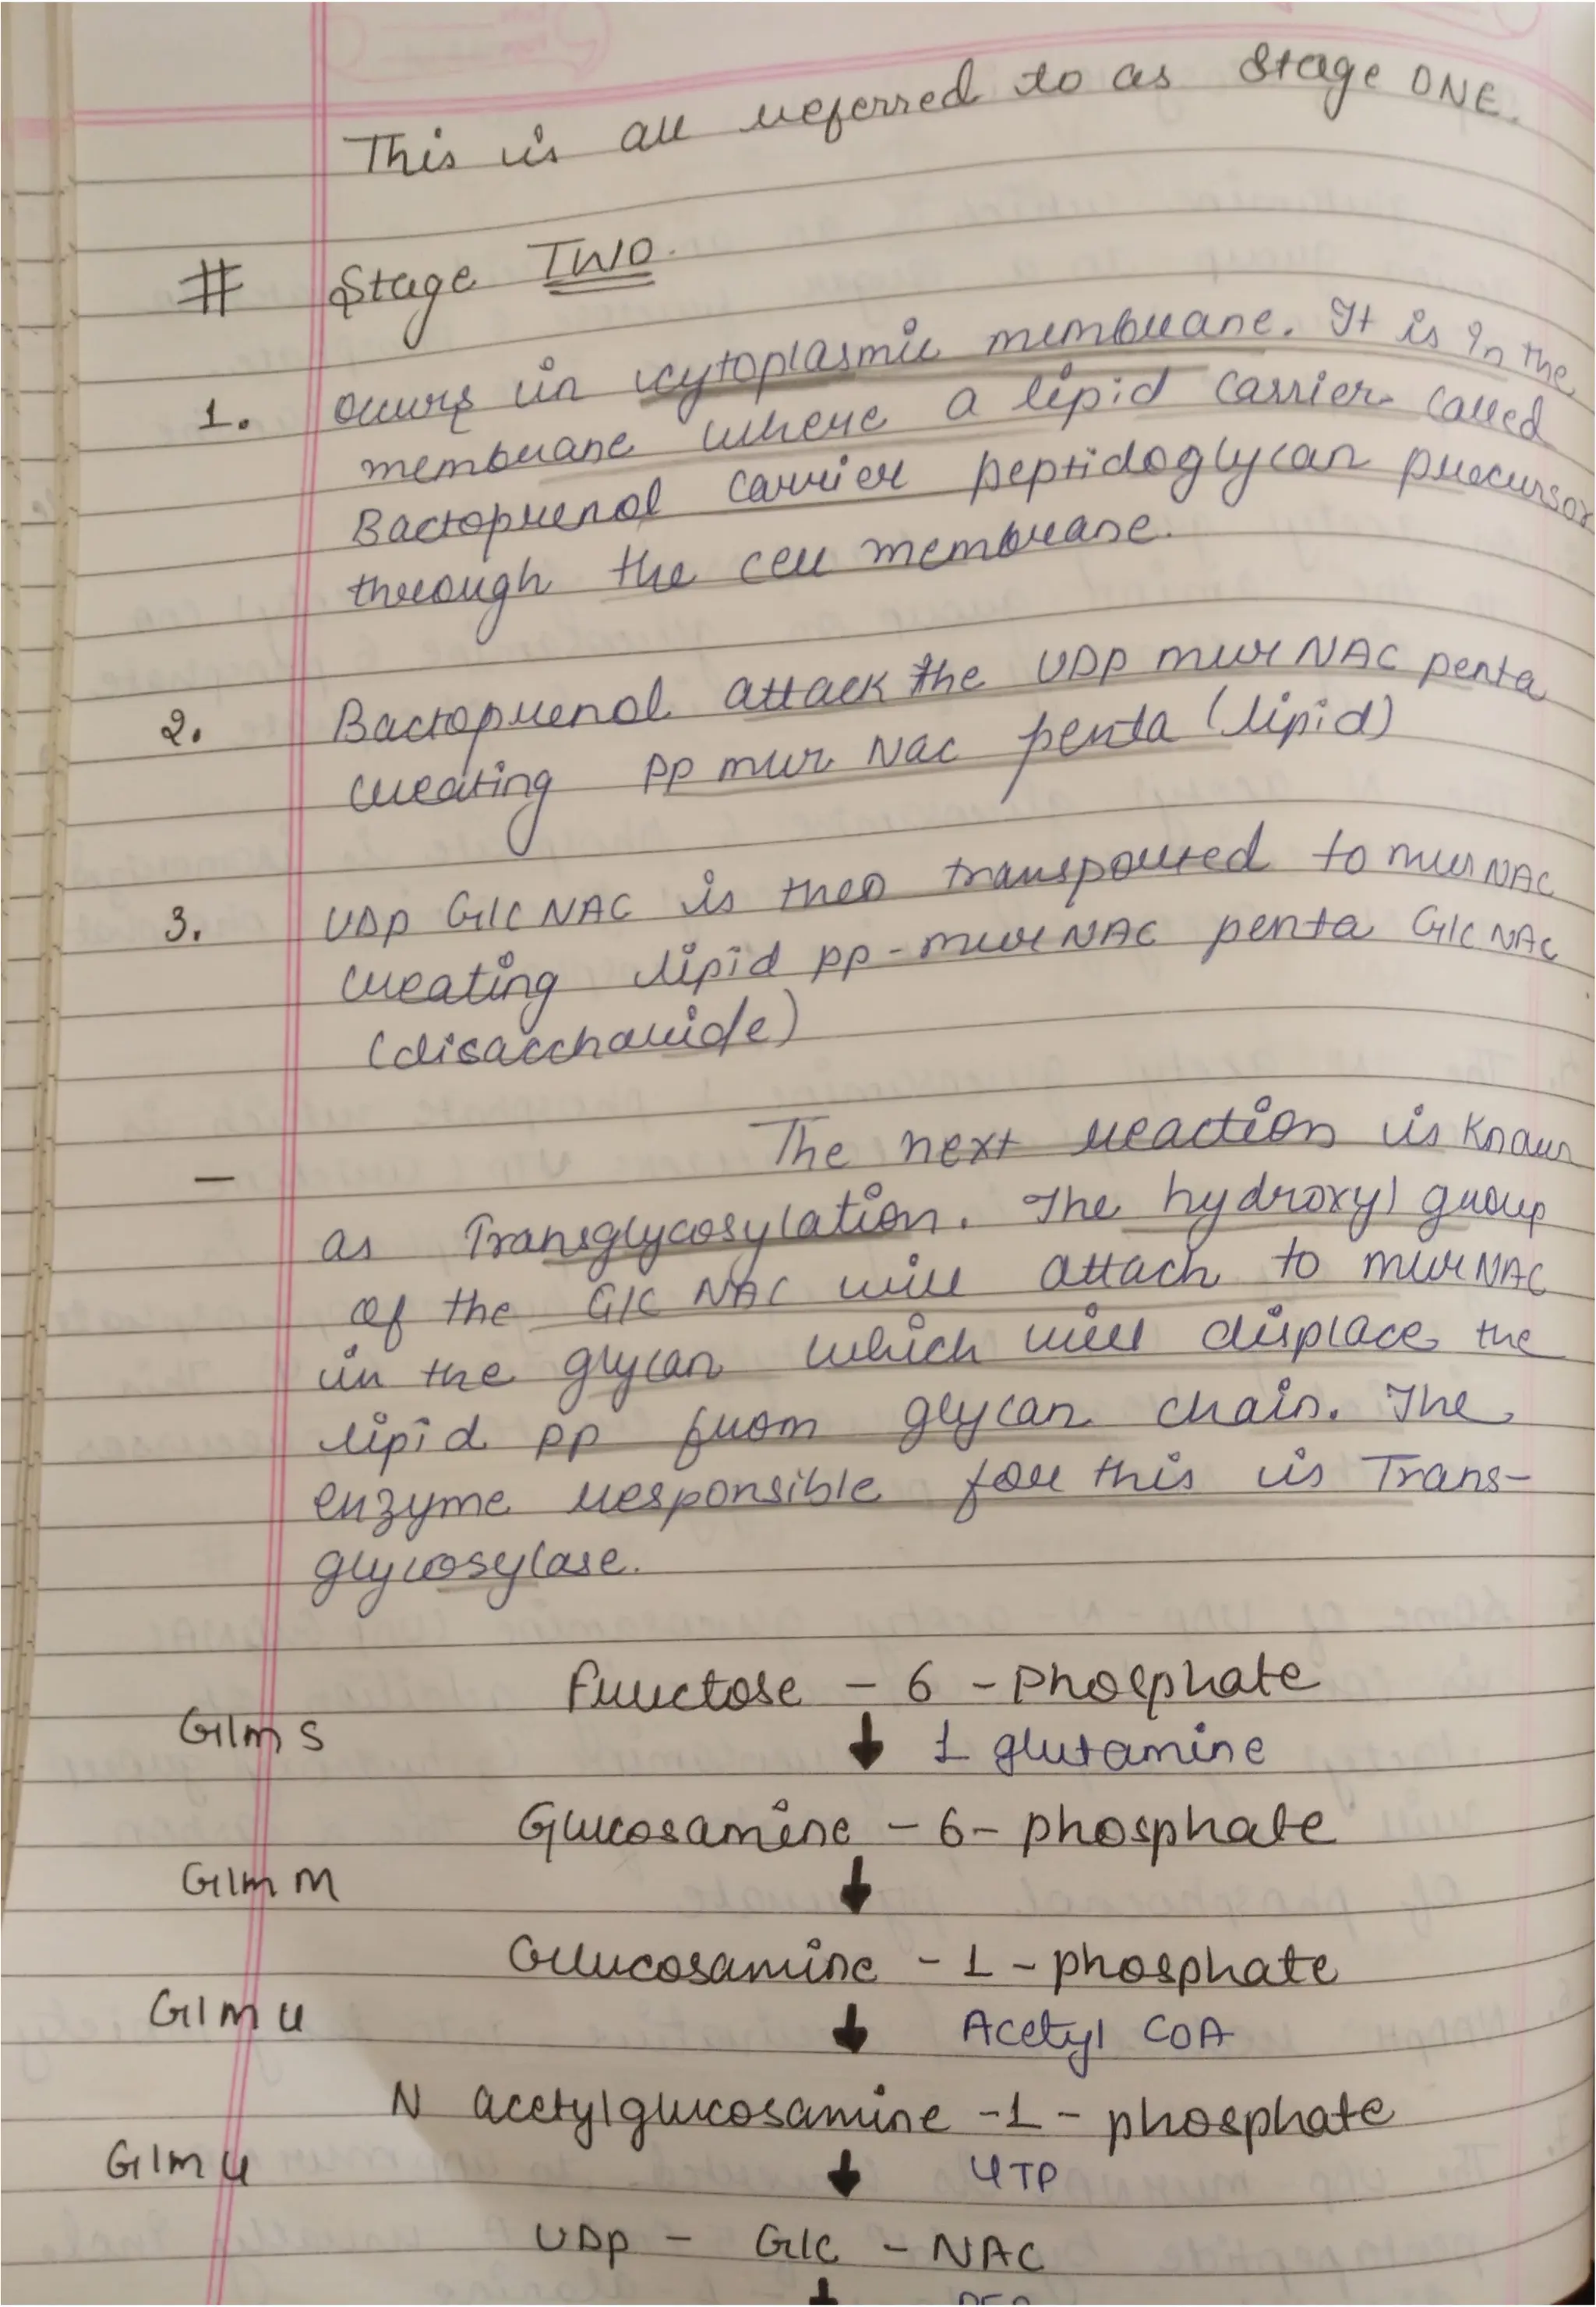 This is all referred to as Stage ONE.
# Stage TWO.
1. occurs in cytoplasmic membrane. It is in the
membrane where a lipid carrier called
Bactoprenol carrier peptidoglycan precursor
through the cell membrane.
2. Bactoprenol attack the UDP mur NAC penta
creating pp mur Nac penta (lipid)
3. UDP Glc NAC is then transported to mur NAC
creating lipid pp - mur NAC penta Glc NAc
(disaccharide)
— The next reaction is known
as Transglycosylation. The hydroxyl group
of the Glc NAC will attach to mur NAC
in the glycan which will displace the
lipid pp from glycan chain. The
enzyme responsible for this is Trans-
glycosylase.
Fructose - 6 - Phosphate
Glm S ↓ 1 glutamine
Glucosamine - 6 - phosphate
Glm M ↓
Glucosamine - 1 - phosphate
Glm U ↓ Acetyl COA
N acetylglucosamine - 1 - phosphate
Glm U ↓ UTP
UDP - Glc - NAC
↓